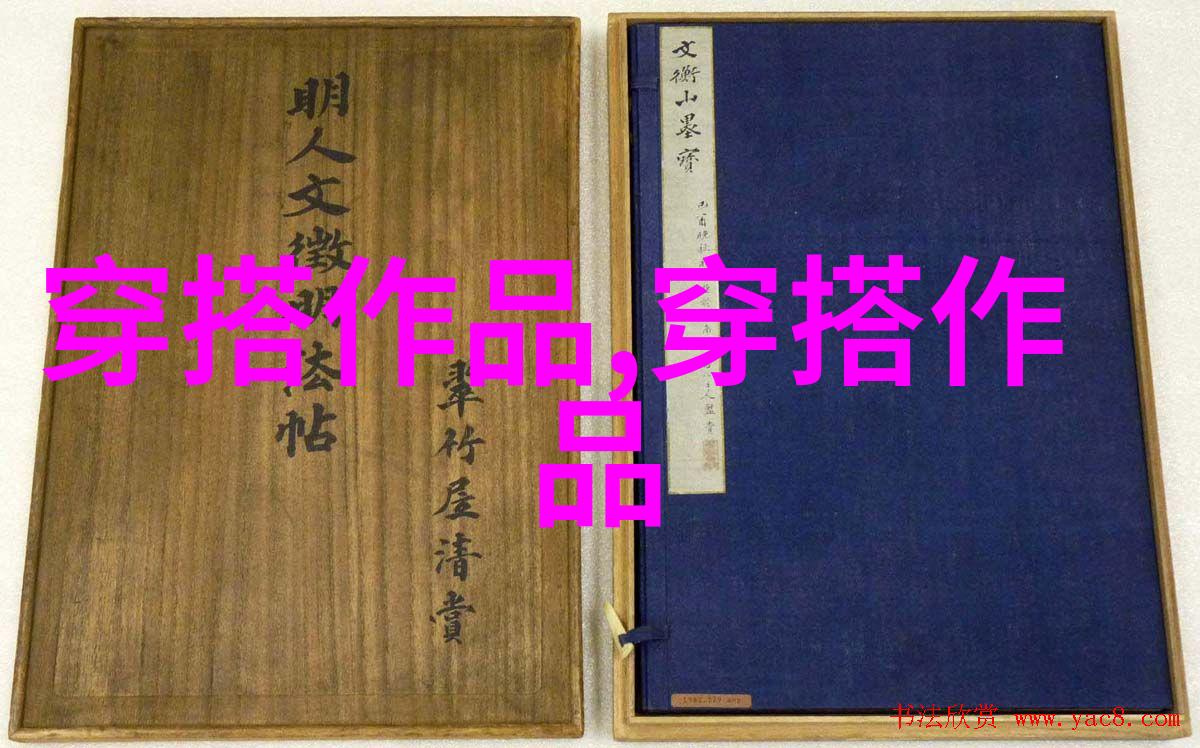 明人文徵明法帖
翠竹屋清賞
文衡山墨寶
穿搭作品,穿搭作
品
1982.229 a-p
书法欣赏 www.yac8.com